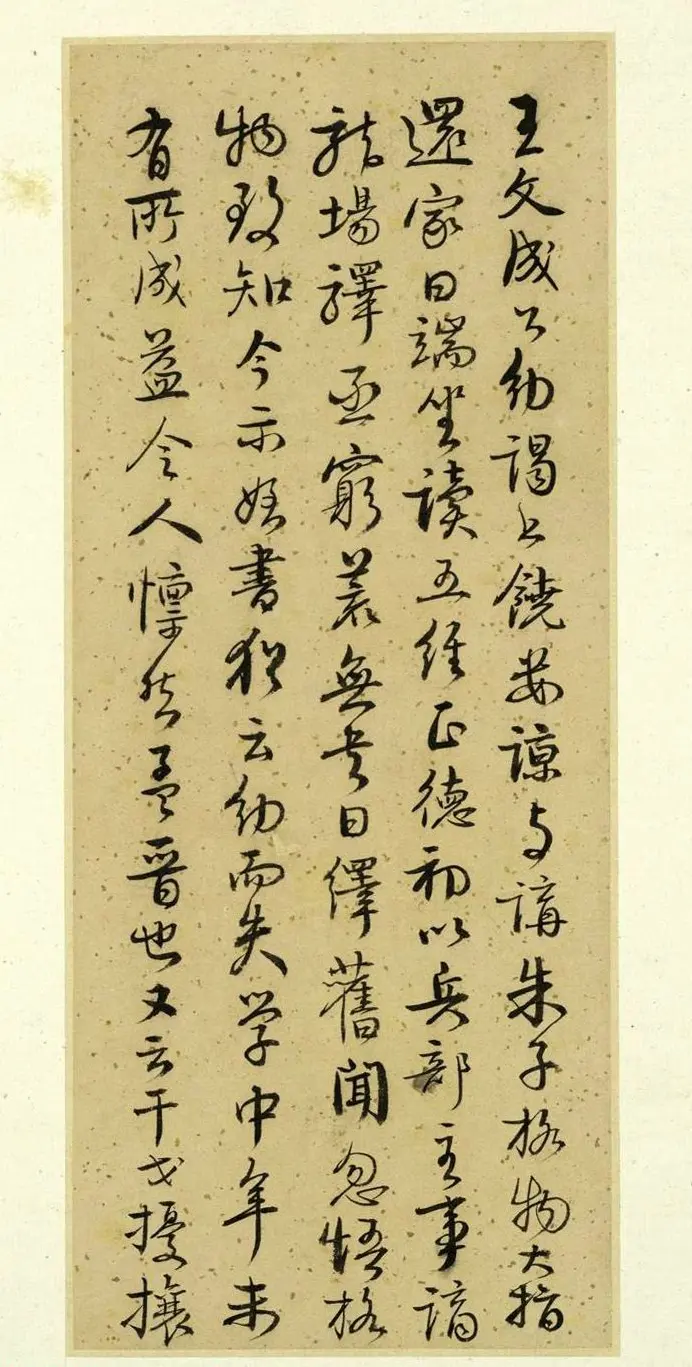 王文成公幼謁上饒婁諒与講朱子格物大指
還家日端坐讀五經正德初以兵部主事謫
龍場驛丞窮荒無書日繹舊聞忽悟格
物致知今示姪書猶云幼而失学中年未
有所成益令人懍然孟晋也又云干戈擾攘